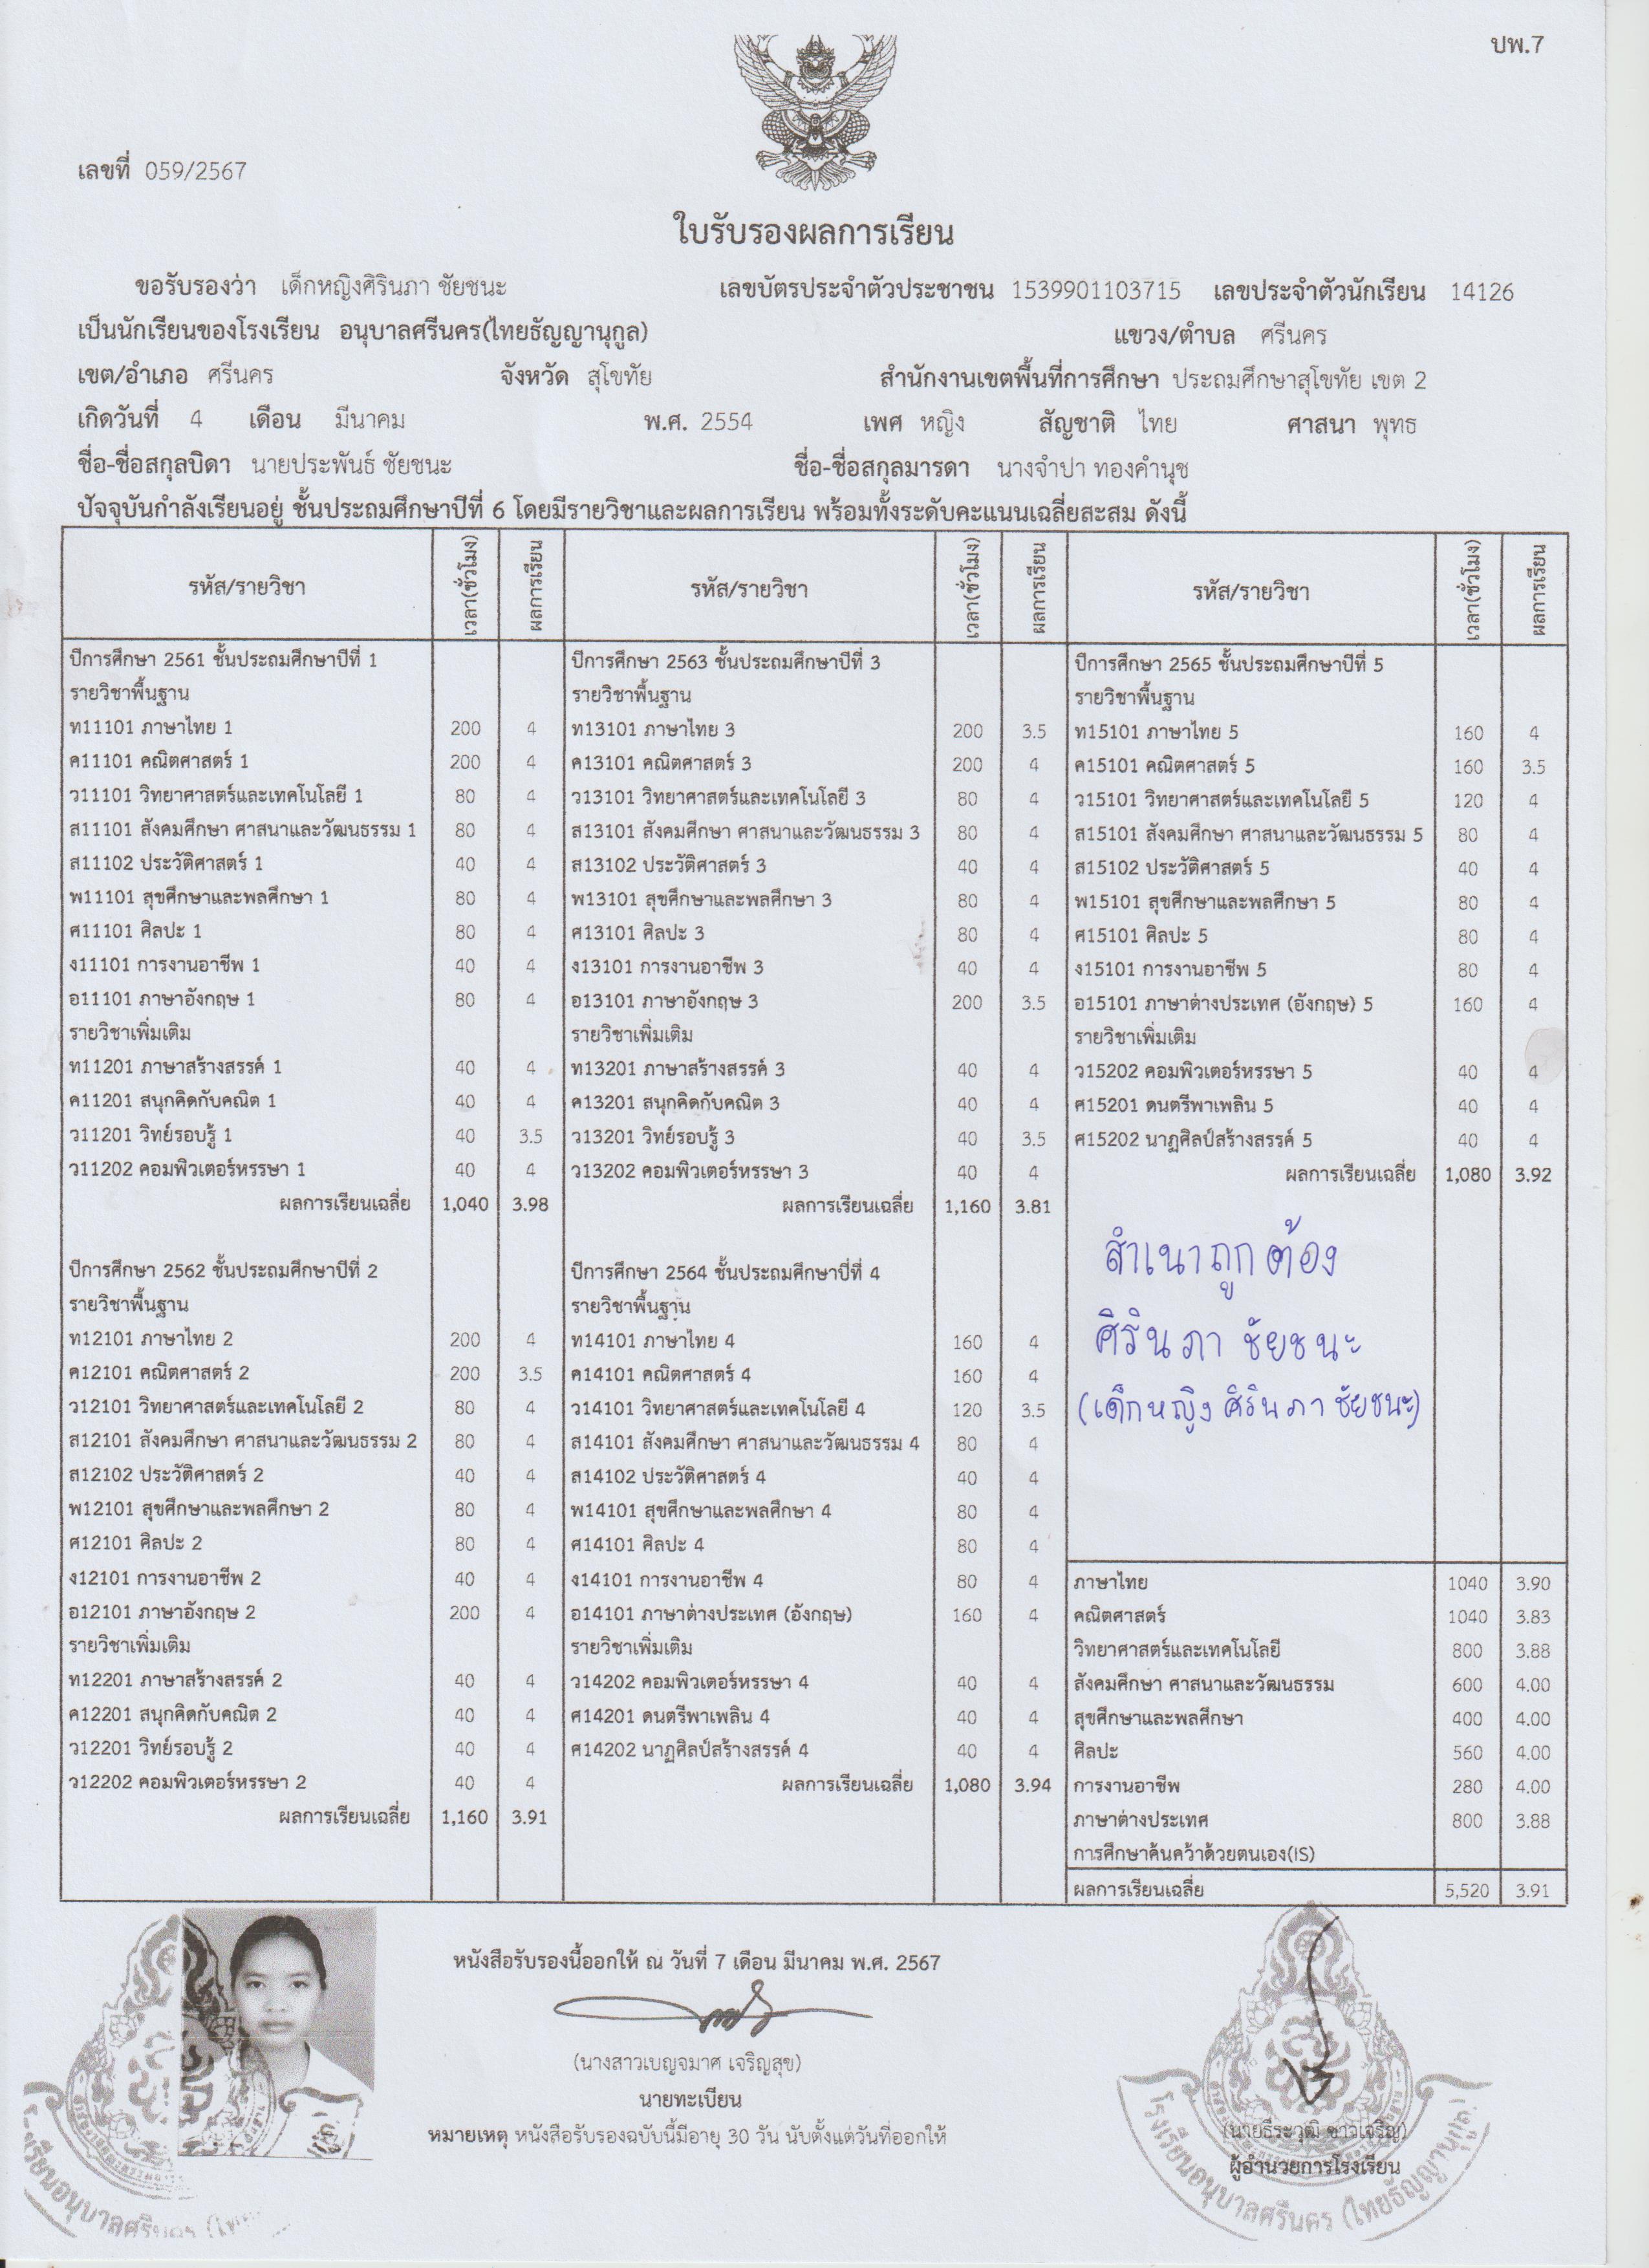 ปพ.7
เลขที่ 059/2567
ใบรับรองผลการเรียน
ขอรับรองว่า เด็กหญิงศิรินภา ชัยชนะ เลขบัตรประจำตัวประชาชน 1539901103715 เลขประจำตัวนักเรียน 14126
เป็นนักเรียนของโรงเรียน อนุบาลศรีนคร(ไทยธัญญานุกูล) แขวง/ตำบล ศรีนคร
เขต/อำเภอ ศรีนคร จังหวัด สุโขทัย สำนักงานเขตพื้นที่การศึกษา ประถมศึกษาสุโขทัย เขต 2
เกิดวันที่ 4 เดือน มีนาคม พ.ศ. 2554 เพศ หญิง สัญชาติ ไทย ศาสนา พุทธ
ชื่อ-ชื่อสกุลบิดา นายประพันธ์ ชัยชนะ ชื่อ-ชื่อสกุลมารดา นางจำปา ทองคำนุช
ปัจจุบันกำลังเรียนอยู่ ชั้นประถมศึกษาปีที่ 6 โดยมีรายวิชาและผลการเรียน พร้อมทั้งระดับคะแนนเฉลี่ยสะสม ดังนี้
รหัส/รายวิชา เวลา(ชั่วโมง) ผลการเรียน
ปีการศึกษา 2561 ชั้นประถมศึกษาปีที่ 1
รายวิชาพื้นฐาน
ท11101 ภาษาไทย 1 200 4
ค11101 คณิตศาสตร์ 1 200 4
ว11101 วิทยาศาสตร์และเทคโนโลยี 1 80 4
ส11101 สังคมศึกษา ศาสนาและวัฒนธรรม 1 80 4
ส11102 ประวัติศาสตร์ 1 40 4
พ11101 สุขศึกษาและพลศึกษา 1 80 4
ศ11101 ศิลปะ 1 80 4
ง11101 การงานอาชีพ 1 40 4
อ11101 ภาษาอังกฤษ 1 80 4
รายวิชาเพิ่มเติม
ท11201 ภาษาสร้างสรรค์ 1 40 4
ค11201 สนุกคิดกับคณิต 1 40 4
ว11201 วิทย์รอบรู้ 1 40 3.5
ว11202 คอมพิวเตอร์หรรษา 1 40 4
ผลการเรียนเฉลี่ย 1,040 3.98
ปีการศึกษา 2562 ชั้นประถมศึกษาปีที่ 2
รายวิชาพื้นฐาน
ท12101 ภาษาไทย 2 200 4
ค12101 คณิตศาสตร์ 2 200 3.5
ว12101 วิทยาศาสตร์และเทคโนโลยี 2 80 4
ส12101 สังคมศึกษา ศาสนาและวัฒนธรรม 2 80 4
ส12102 ประวัติศาสตร์ 2 40 4
พ12101 สุขศึกษาและพลศึกษา 2 80 4
ศ12101 ศิลปะ 2 80 4
ง12101 การงานอาชีพ 2 40 4
อ12101 ภาษาอังกฤษ 2 200 4
รายวิชาเพิ่มเติม
ท12201 ภาษาสร้างสรรค์ 2 40 4
ค12201 สนุกคิดกับคณิต 2 40 4
ว12201 วิทย์รอบรู้ 2 40 4
ว12202 คอมพิวเตอร์หรรษา 2 40 4
ผลการเรียนเฉลี่ย 1,160 3.91
รหัส/รายวิชา เวลา(ชั่วโมง) ผลการเรียน
ปีการศึกษา 2563 ชั้นประถมศึกษาปีที่ 3
รายวิชาพื้นฐาน
ท13101 ภาษาไทย 3 200 3.5
ค13101 คณิตศาสตร์ 3 200 4
ว13101 วิทยาศาสตร์และเทคโนโลยี 3 80 4
ส13101 สังคมศึกษา ศาสนาและวัฒนธรรม 3 80 4
ส13102 ประวัติศาสตร์ 3 40 4
พ13101 สุขศึกษาและพลศึกษา 3 80 4
ศ13101 ศิลปะ 3 80 4
ง13101 การงานอาชีพ 3 40 4
อ13101 ภาษาอังกฤษ 3 200 3.5
รายวิชาเพิ่มเติม
ท13201 ภาษาสร้างสรรค์ 3 40 4
ค13201 สนุกคิดกับคณิต 3 40 4
ว13201 วิทย์รอบรู้ 3 40 3.5
ว13202 คอมพิวเตอร์หรรษา 3 40 4
ผลการเรียนเฉลี่ย 1,160 3.81
ปีการศึกษา 2564 ชั้นประถมศึกษาปีที่ 4
รายวิชาพื้นฐาน
ท14101 ภาษาไทย 4 160 4
ค14101 คณิตศาสตร์ 4 160 4
ว14101 วิทยาศาสตร์และเทคโนโลยี 4 120 3.5
ส14101 สังคมศึกษา ศาสนาและวัฒนธรรม 4 80 4
ส14102 ประวัติศาสตร์ 4 40 4
พ14101 สุขศึกษาและพลศึกษา 4 80 4
ศ14101 ศิลปะ 4 80 4
ง14101 การงานอาชีพ 4 80 4
อ14101 ภาษาต่างประเทศ (อังกฤษ) 160 4
รายวิชาเพิ่มเติม
ว14202 คอมพิวเตอร์หรรษา 4 40 4
ศ14201 ดนตรีพาเพลิน 4 40 4
ศ14202 นาฏศิลป์สร้างสรรค์ 4 40 4
ผลการเรียนเฉลี่ย 1,080 3.94
รหัส/รายวิชา เวลา(ชั่วโมง) ผลการเรียน
ปีการศึกษา 2565 ชั้นประถมศึกษาปีที่ 5
รายวิชาพื้นฐาน
ท15101 ภาษาไทย 5 160 4
ค15101 คณิตศาสตร์ 5 160 3.5
ว15101 วิทยาศาสตร์และเทคโนโลยี 5 120 4
ส15101 สังคมศึกษา ศาสนาและวัฒนธรรม 5 80 4
ส15102 ประวัติศาสตร์ 5 40 4
พ15101 สุขศึกษาและพลศึกษา 5 80 4
ศ15101 ศิลปะ 5 80 4
ง15101 การงานอาชีพ 5 80 4
อ15101 ภาษาต่างประเทศ (อังกฤษ) 5 160 4
รายวิชาเพิ่มเติม
ว15202 คอมพิวเตอร์หรรษา 5 40 4
ศ15201 ดนตรีพาเพลิน 5 40 4
ศ15202 นาฏศิลป์สร้างสรรค์ 5 40 4
ผลการเรียนเฉลี่ย 1,080 3.92
สำเนาถูกต้อง
ศิรินภา ชัยชนะ
(เด็กหญิง ศิรินภา ชัยชนะ)
ภาษาไทย 1040 3.90
คณิตศาสตร์ 1040 3.83
วิทยาศาสตร์และเทคโนโลยี 800 3.88
สังคมศึกษา ศาสนาและวัฒนธรรม 600 4.00
สุขศึกษาและพลศึกษา 400 4.00
ศิลปะ 560 4.00
การงานอาชีพ 280 4.00
ภาษาต่างประเทศ 800 3.88
การศึกษาค้นคว้าด้วยตนเอง(IS)
ผลการเรียนเฉลี่ย 5,520 3.91
หนังสือรับรองนี้ออกให้ ณ วันที่ 7 เดือน มีนาคม พ.ศ. 2567
(นางสาวเบญจมาศ เจริญสุข)
นายทะเบียน
หมายเหตุ หนังสือรับรองฉบับนี้มีอายุ 30 วัน นับตั้งแต่วันที่ออกให้
(นายธีระวุฒิ ขาวเจริญ)
ผู้อำนวยการโรงเรียน
โรงเรียนอนุบาลศรีนคร (ไทยธัญญานุกูล)